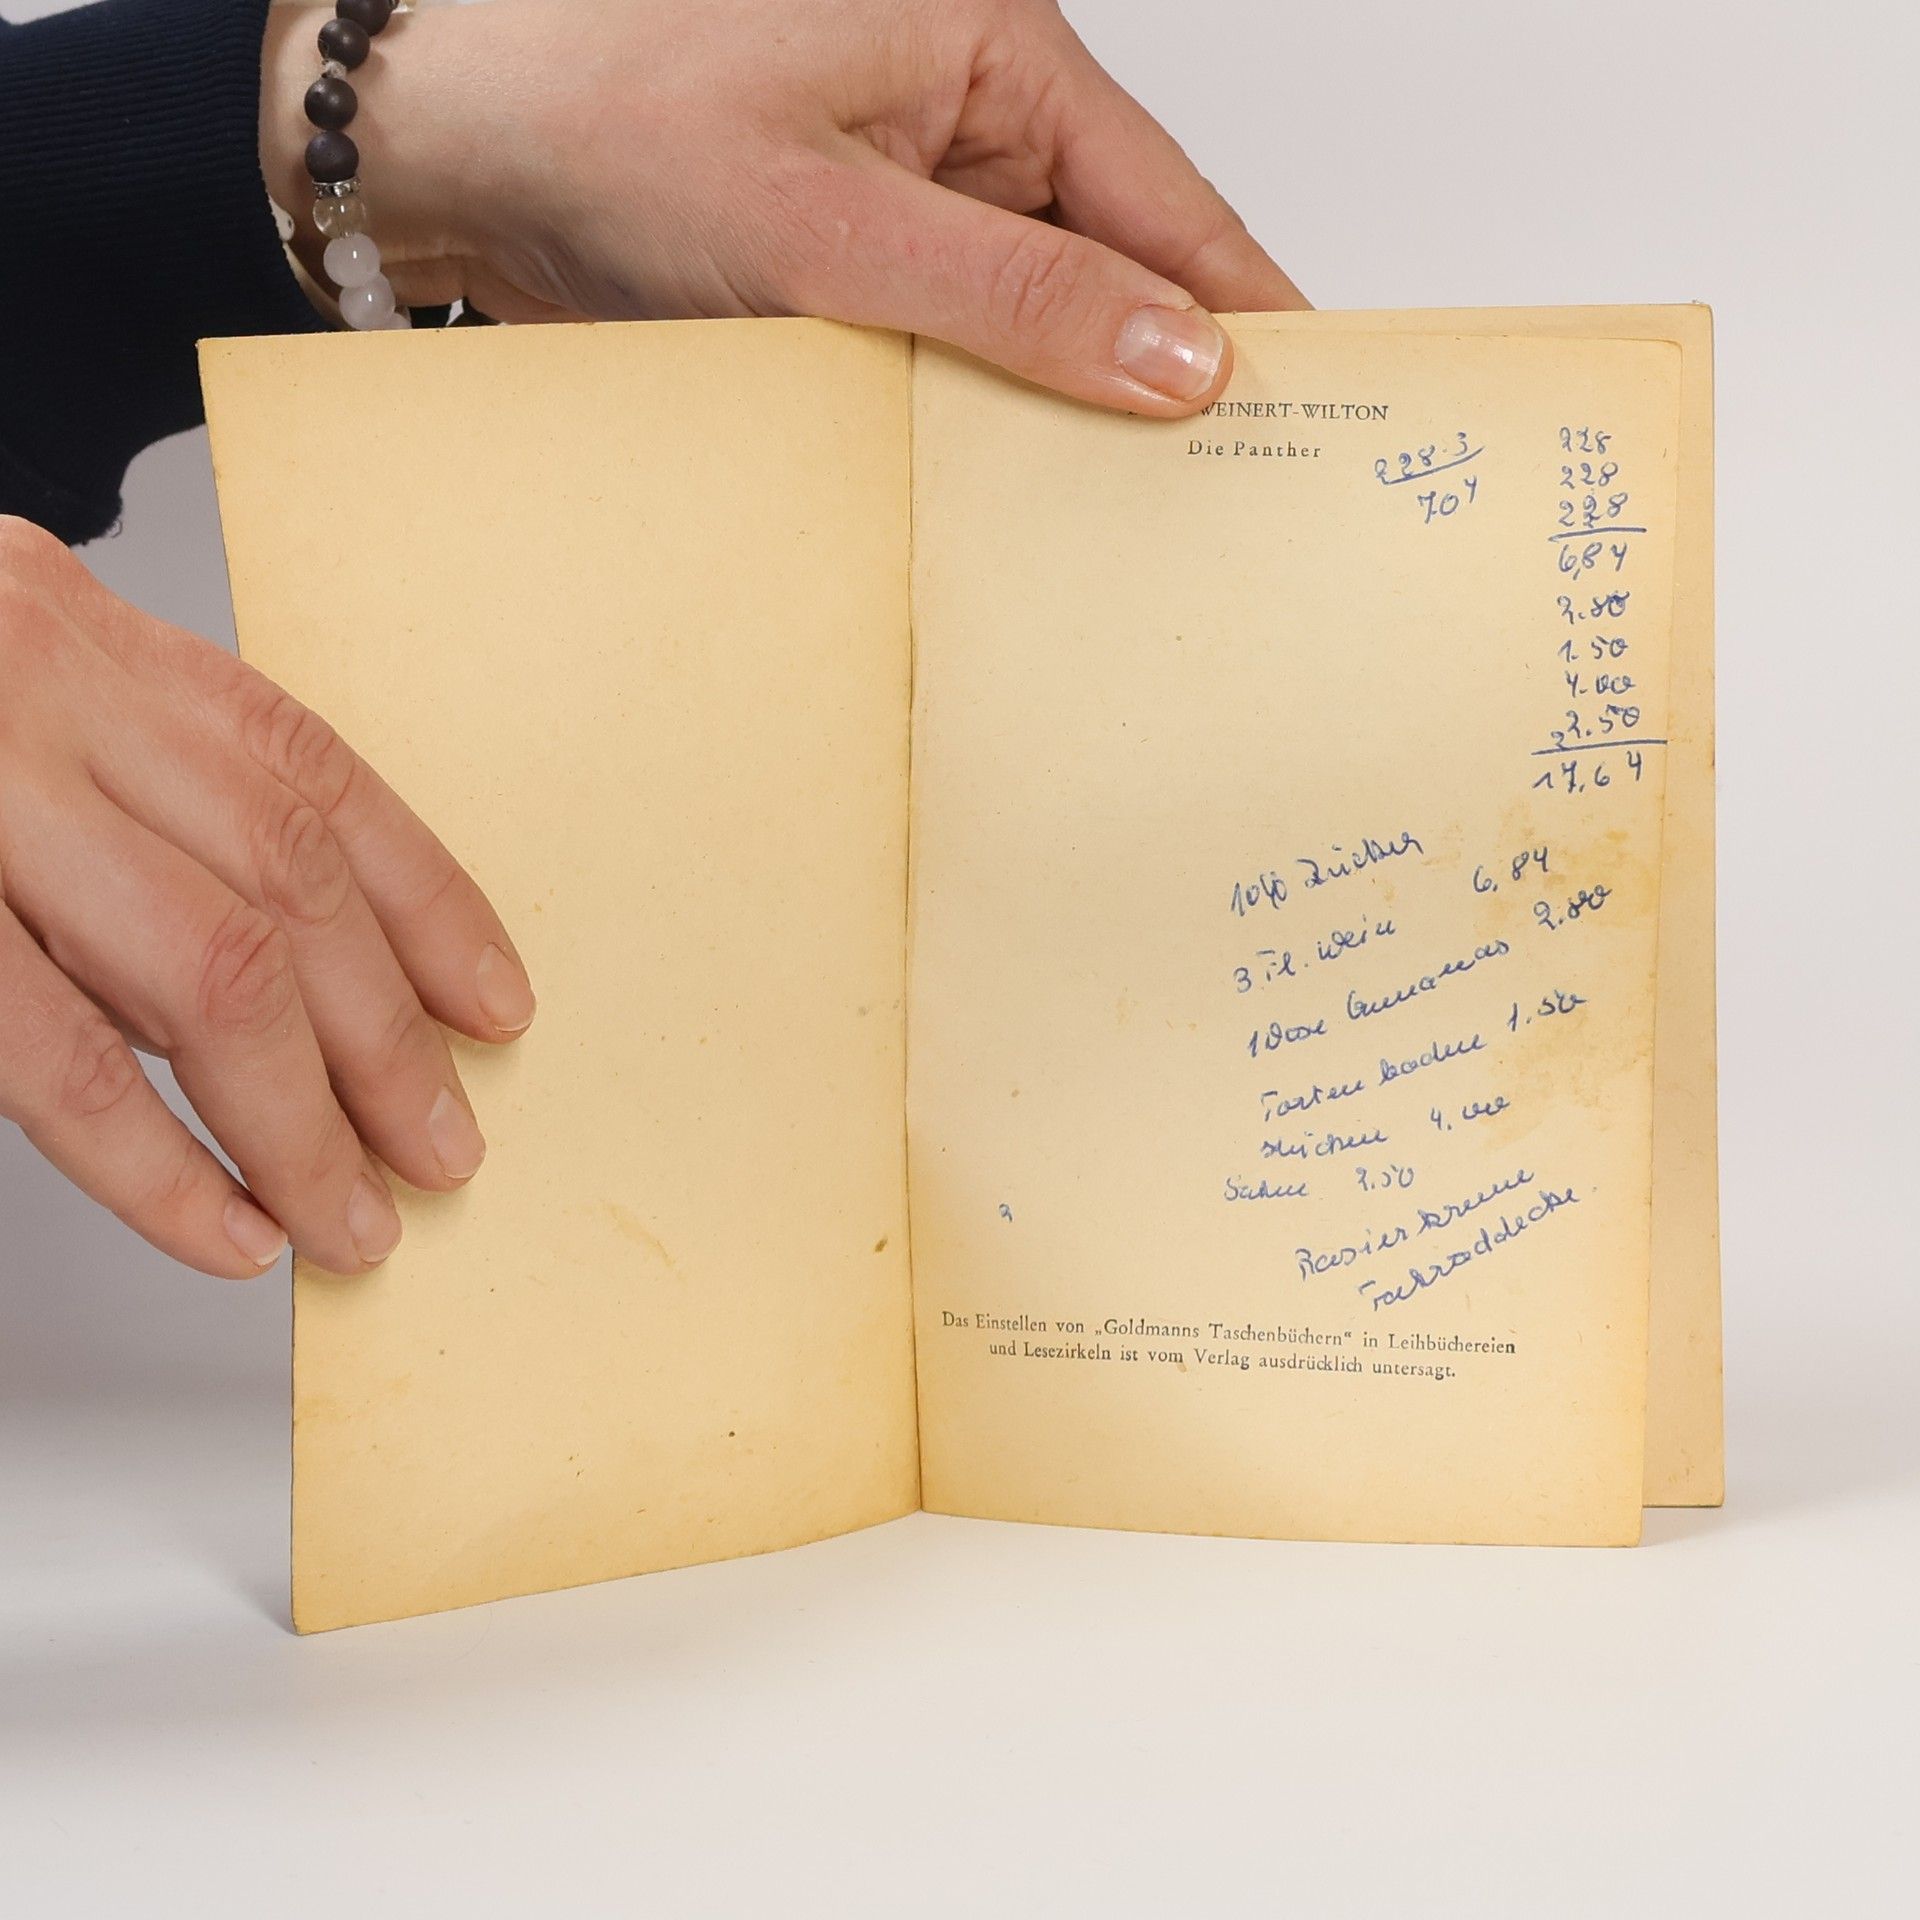 WEINERT-WILTON
Die Panther
228·3
704
228
228
228
6,84
2.80
1.50
4.00
2.50
17,64
Zucker
3 Fl. Wein 6.84
1 Dose Annanas 2.80
Tortenboden 1.50
Kuchen 4.00
Sahne 2.50
Rasierkreme
Fahraddecke.
2
Das Einstellen von „Goldmanns Taschenbüchern“ in Leihbüchereien
und Lesezirkeln ist vom Verlag ausdrücklich untersagt.